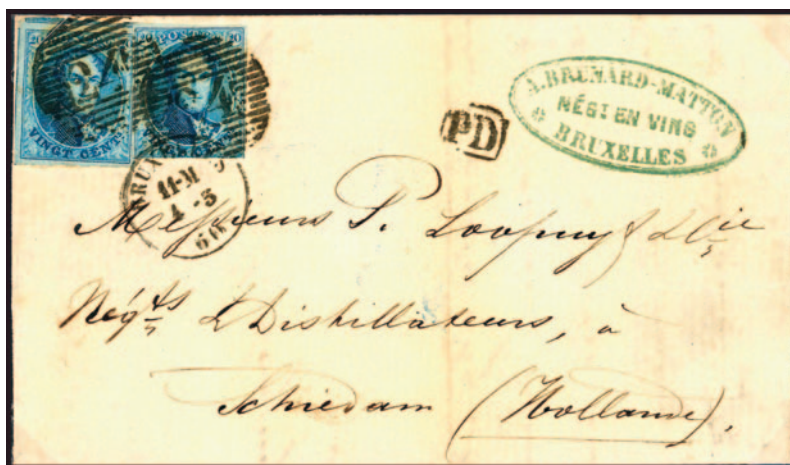 20 POSTES 20
VINGT CENTS
VINGT CENTS
PD
A. BRUNARD-MATTON
NÉGT EN VINS
BRUXELLES
11-M
60
Messieurs P. Loopuy & Cie
Négts & Distillateurs, à
Schiedam (Hollande).